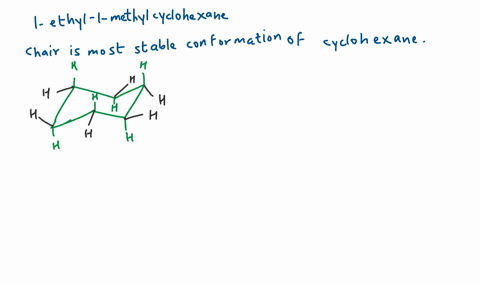 1-ethyl-1-methylcyclohexane
Chair is most stable conformation of cyclohexane.
H H
H H H H H
H H H
H H